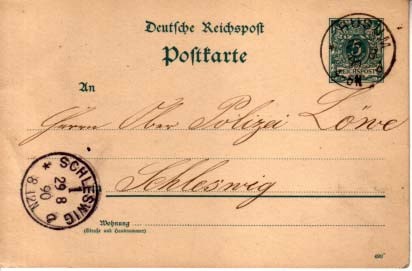 Deutsche Reichspost
Postkarte
HUSUM
5
REICHSPOST
An
Herrn Ober Polizei Löwe
Schleswig
* SCHLESWIG
1
29 8
90
8-12N
Wohnung
(Straße und Hausnummer)